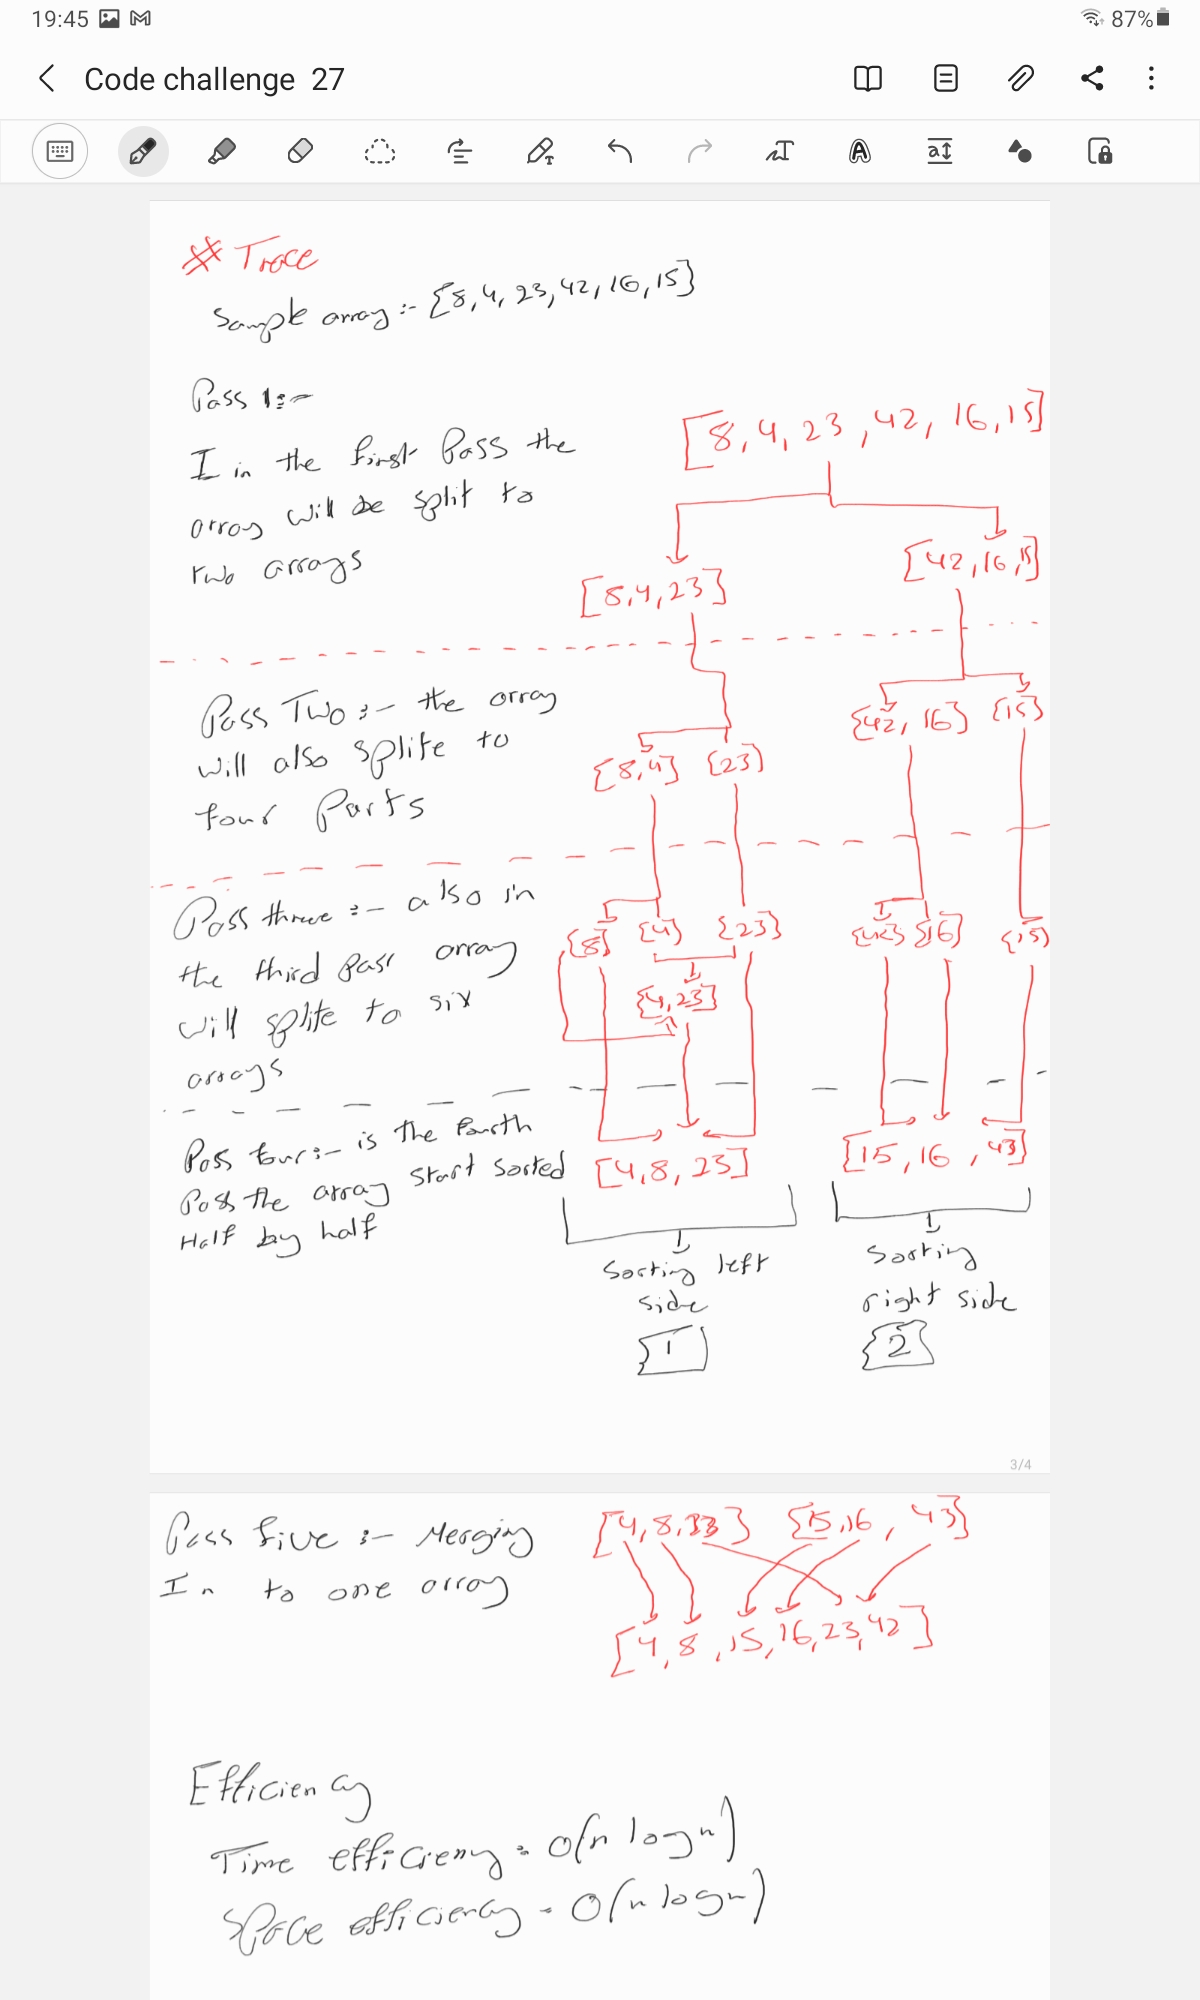 19:45
87%
Code challenge 27
# Trace
Sample array :- {8,4,23,42,16,15}
Pass 1:-
I in the first Pass the
array will be split to
two arrays
[8,4,23,42,16,15]
[8,4,23] [42,16,15]
Pass Two :- the array
will also splite to
four Parts
{8,4} {23} {42,16} {15}
Pass three :- also in
the third pass array
will splite to six
arrays
{8} {4} {23} {42} {16} {15}
{4,23}
Pass four:- is the fourth
Pass the array start sorted
Half by half
[4,8,23] [15,16,43]
Sorting left
side
{1}
Sorting
right side
{2}
3/4
Pass five :- Merging
In to one array
[4,8,33] {15,16,43}
[4,8,15,16,23,42]
Efficiency
Time efficieny = O(n logn)
Space efficiency = O(n logn)